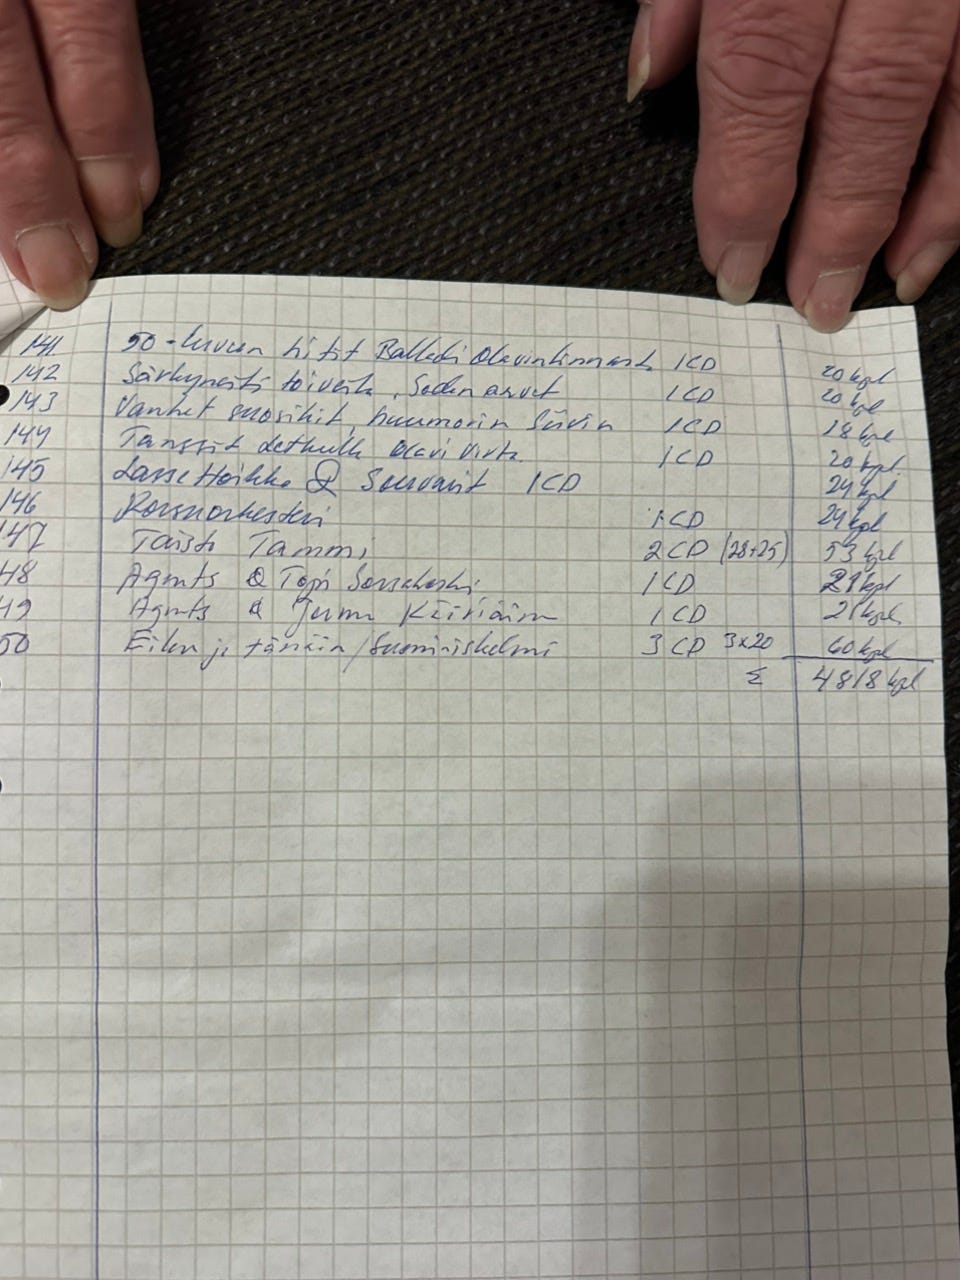 141 50-luvun hitit Balladi Olavinlinnasta 1CD 20 kpl
142 Särkyneitä toiveita, Sodan arvet 1CD 20 kpl
143 Vanhat suosikit, huumorin siivin 1CD 18 kpl
144 Tanssit lethulla Olavi Virta 1CD 20 kpl
145 Lasse Hoikka & Souvarit 1CD 24 kpl
146 Korsuorkesteri 1CD 24 kpl
47 Taisto Tammi 2CD (28+25) 53 kpl
48 Agents & Topi Sorsakoski 1CD 21 kpl
49 Agents & Jorma Kääriäinen 1CD 21 kpl
50 Eilen ja tänään / Suomi-iskelmä 3CD 3x20 60 kpl
Σ 4818 kpl